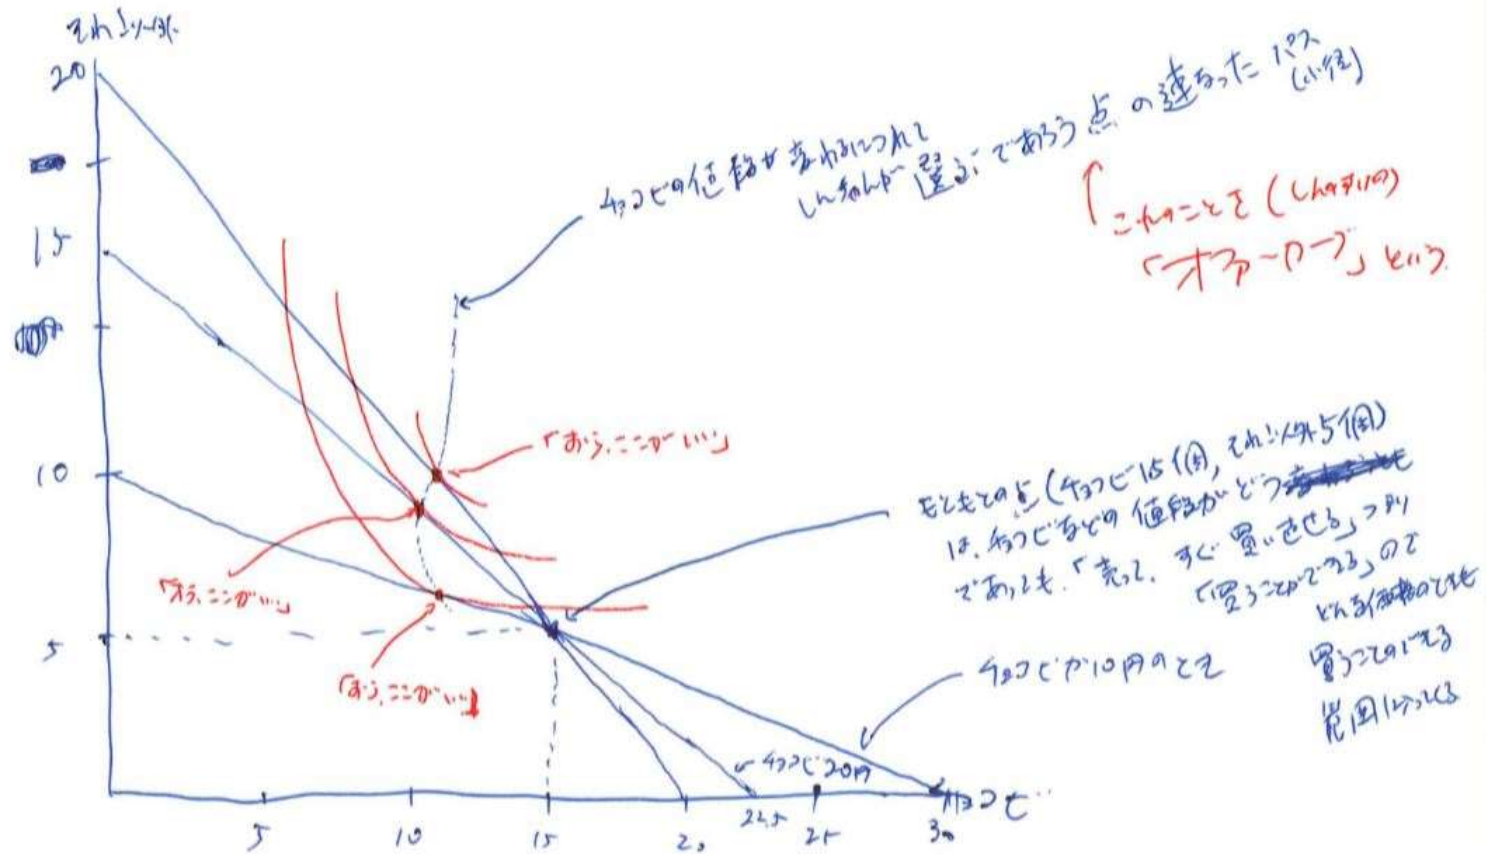 それ以外
20
15
10
5
チョコビの値段が変わるにつれて
しんちゃんが選ぶであろう点の連なったパス
(小径)
これのことを(しんちゃんの)
「オファーカーブ」という
「おら、ここがいい」
「オラ、ここがいい」
「おら、ここがいい」
もともとの点(チョコビ15個, それ以外5個)
は、チョコビなどの値段がどう
であっても、「売って、すぐ買い直せる」つまり
「買うことができる」ので
どんな価格のときも
買うことのできる
範囲に入ってる
チョコビが10円のとき
チョコビ20円
チョコビ
5
10
15
20
22.5
25
30